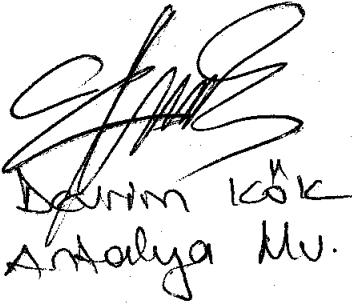 Devrim KÖK
Antalya Mv.